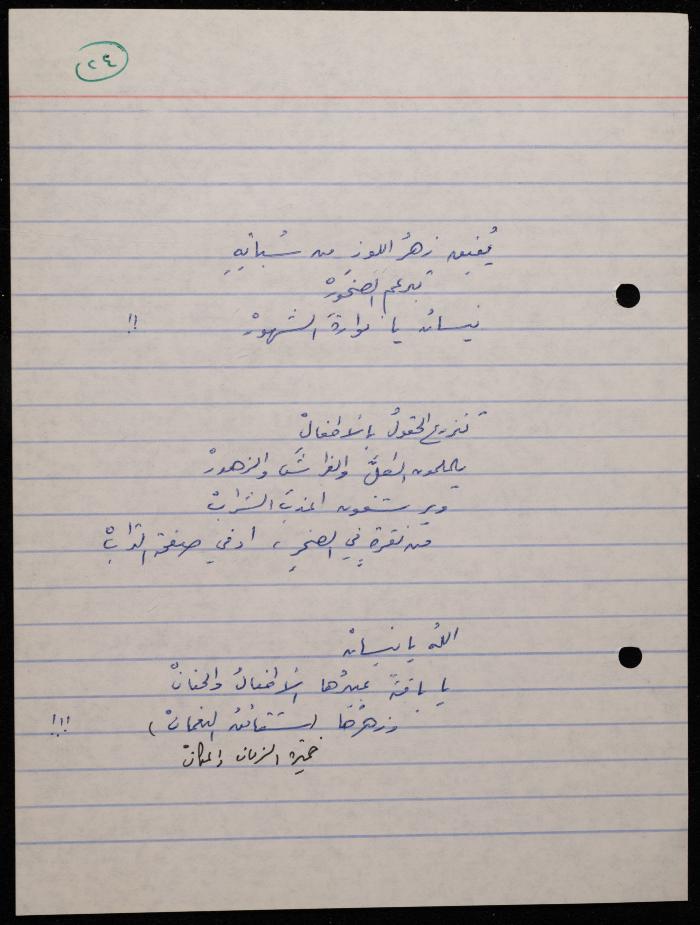 ٢٤
يُفيق زهرُ اللوز من سُباتِهِ
تبرعم الصخورْ
نيسان يا نوارةَ الشهورْ !!
تنزرع الحقولُ بالأطفالْ
يلملمون الفلَّ والفراشَ والزهورْ
ويرشفون أعذبَ الشرابْ
من نقرةٍ في الصخرِ، أو في صفحة الترابْ
اللهُ يا نيسانْ
يا باقةً عبيرُها الأطفالُ والحنانْ
وزهرُها (شقائقُ النعمانْ) !!!
خميرة الزمان والمكانْ